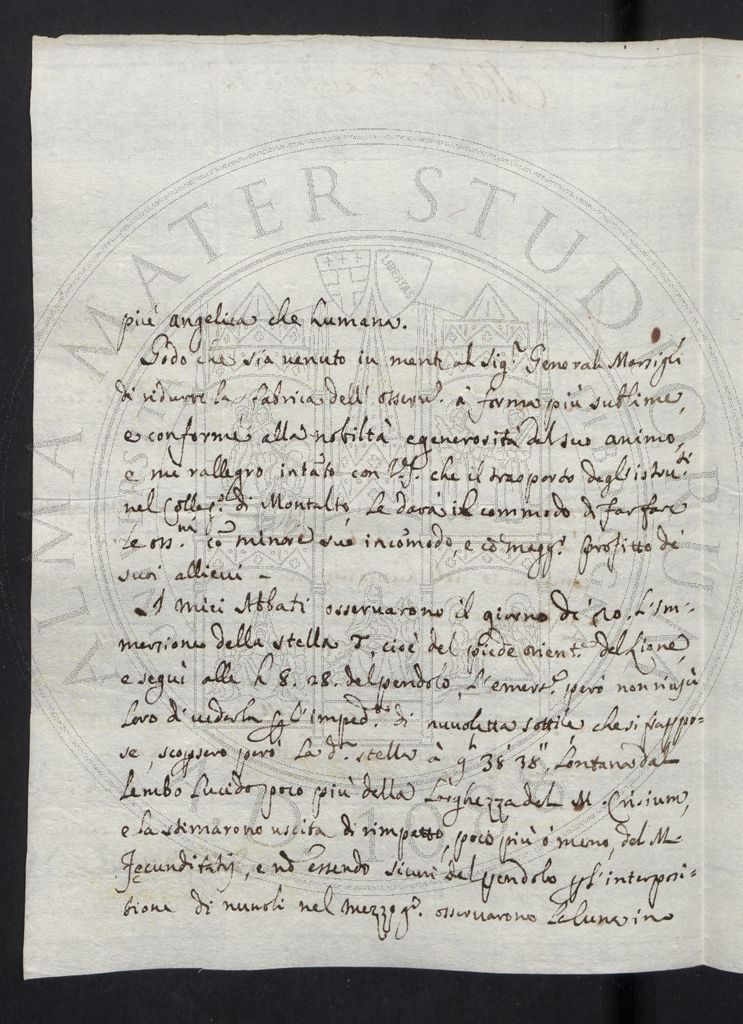 più angelica che humana.
Godo che sia venuto in mente al Sig.r Generale Marsigli
di ridurre la fabrica dell' osserv.e à forma più sublime,
e conforme alla nobiltà e generosità del suo animo,
e mi rallegro intãto con V.S. che il trasporto degl' istru.ti
nel Colleg.o di Montalto, le darà il commodo di far fare
le oss.ni cõ minore suo incõmodo, e cõ magg.r profitto de
suoi allievi -
I miei Abbati osservarono il giorno di 20. l'Im-
mersione della stella τ, cioè del piede orient.e del Lione,
e seguì alle h 8. 28. del pendolo, l'emers.e però non riuscì
loro di vederla ꝑ l'imped.to di nuvoletta sottile che si frappo-
se, scopsero però la d.a stella à 9h 38' 38", lontana dal
lembo lucido poco più della larghezza del M. Crisium,
e la stimarono uscita di rimpetto, poco più ò meno, del M.
Fęcunditatis, e nõ essendo sicuri del pendolo ꝑ l'interposi-
tione di nuvoli nel mezzog.o osservarono la luna in
ALMA MATER STUDIORUM
A.D. 1088
LIBERTAS